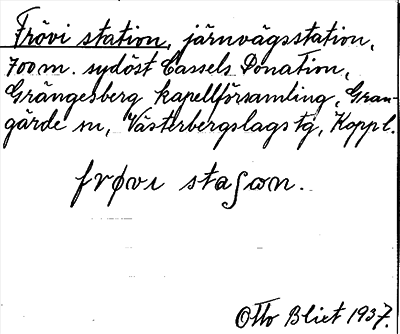 Frövi station, järnvägsstation,
700 m. sydöst Cassels Donation,
Grängesberg kapellförsamling, Gran-
gärde sn, Västerbergslags tg, Kopp l.
frøvi staʃon.
Otto Blixt 1937.